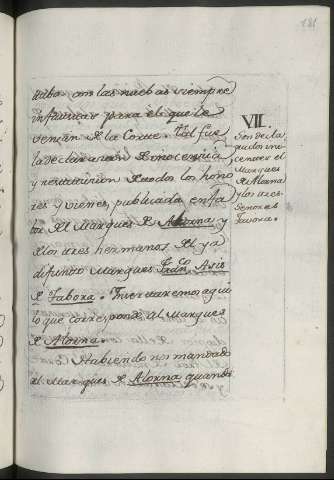 181
taba con las nuebas siempre
infaustas para el que le
venian de la Corte. Tal fue
la declaracion de inocencia
y restitucion de todos los hono
res y vienes, publicada en fa
bor del Marques de Alorna y
de los tres hermanos del ya
difunto Marques Fran.co Asis
de Tabora. Insertaremos aqui
lo que corresponde al Marques
de Alorna.
Habiendo nos mandado
al Marques de Alorna quando
VII.
Son decla
rados ino
centes el
Marques
de Alorna
y los tres
Señores
Tavora.